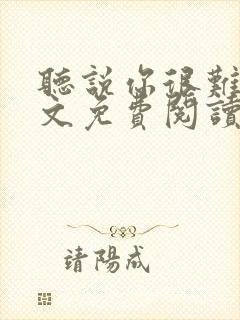 聽說你很難
文免費閱讀
靖陽成